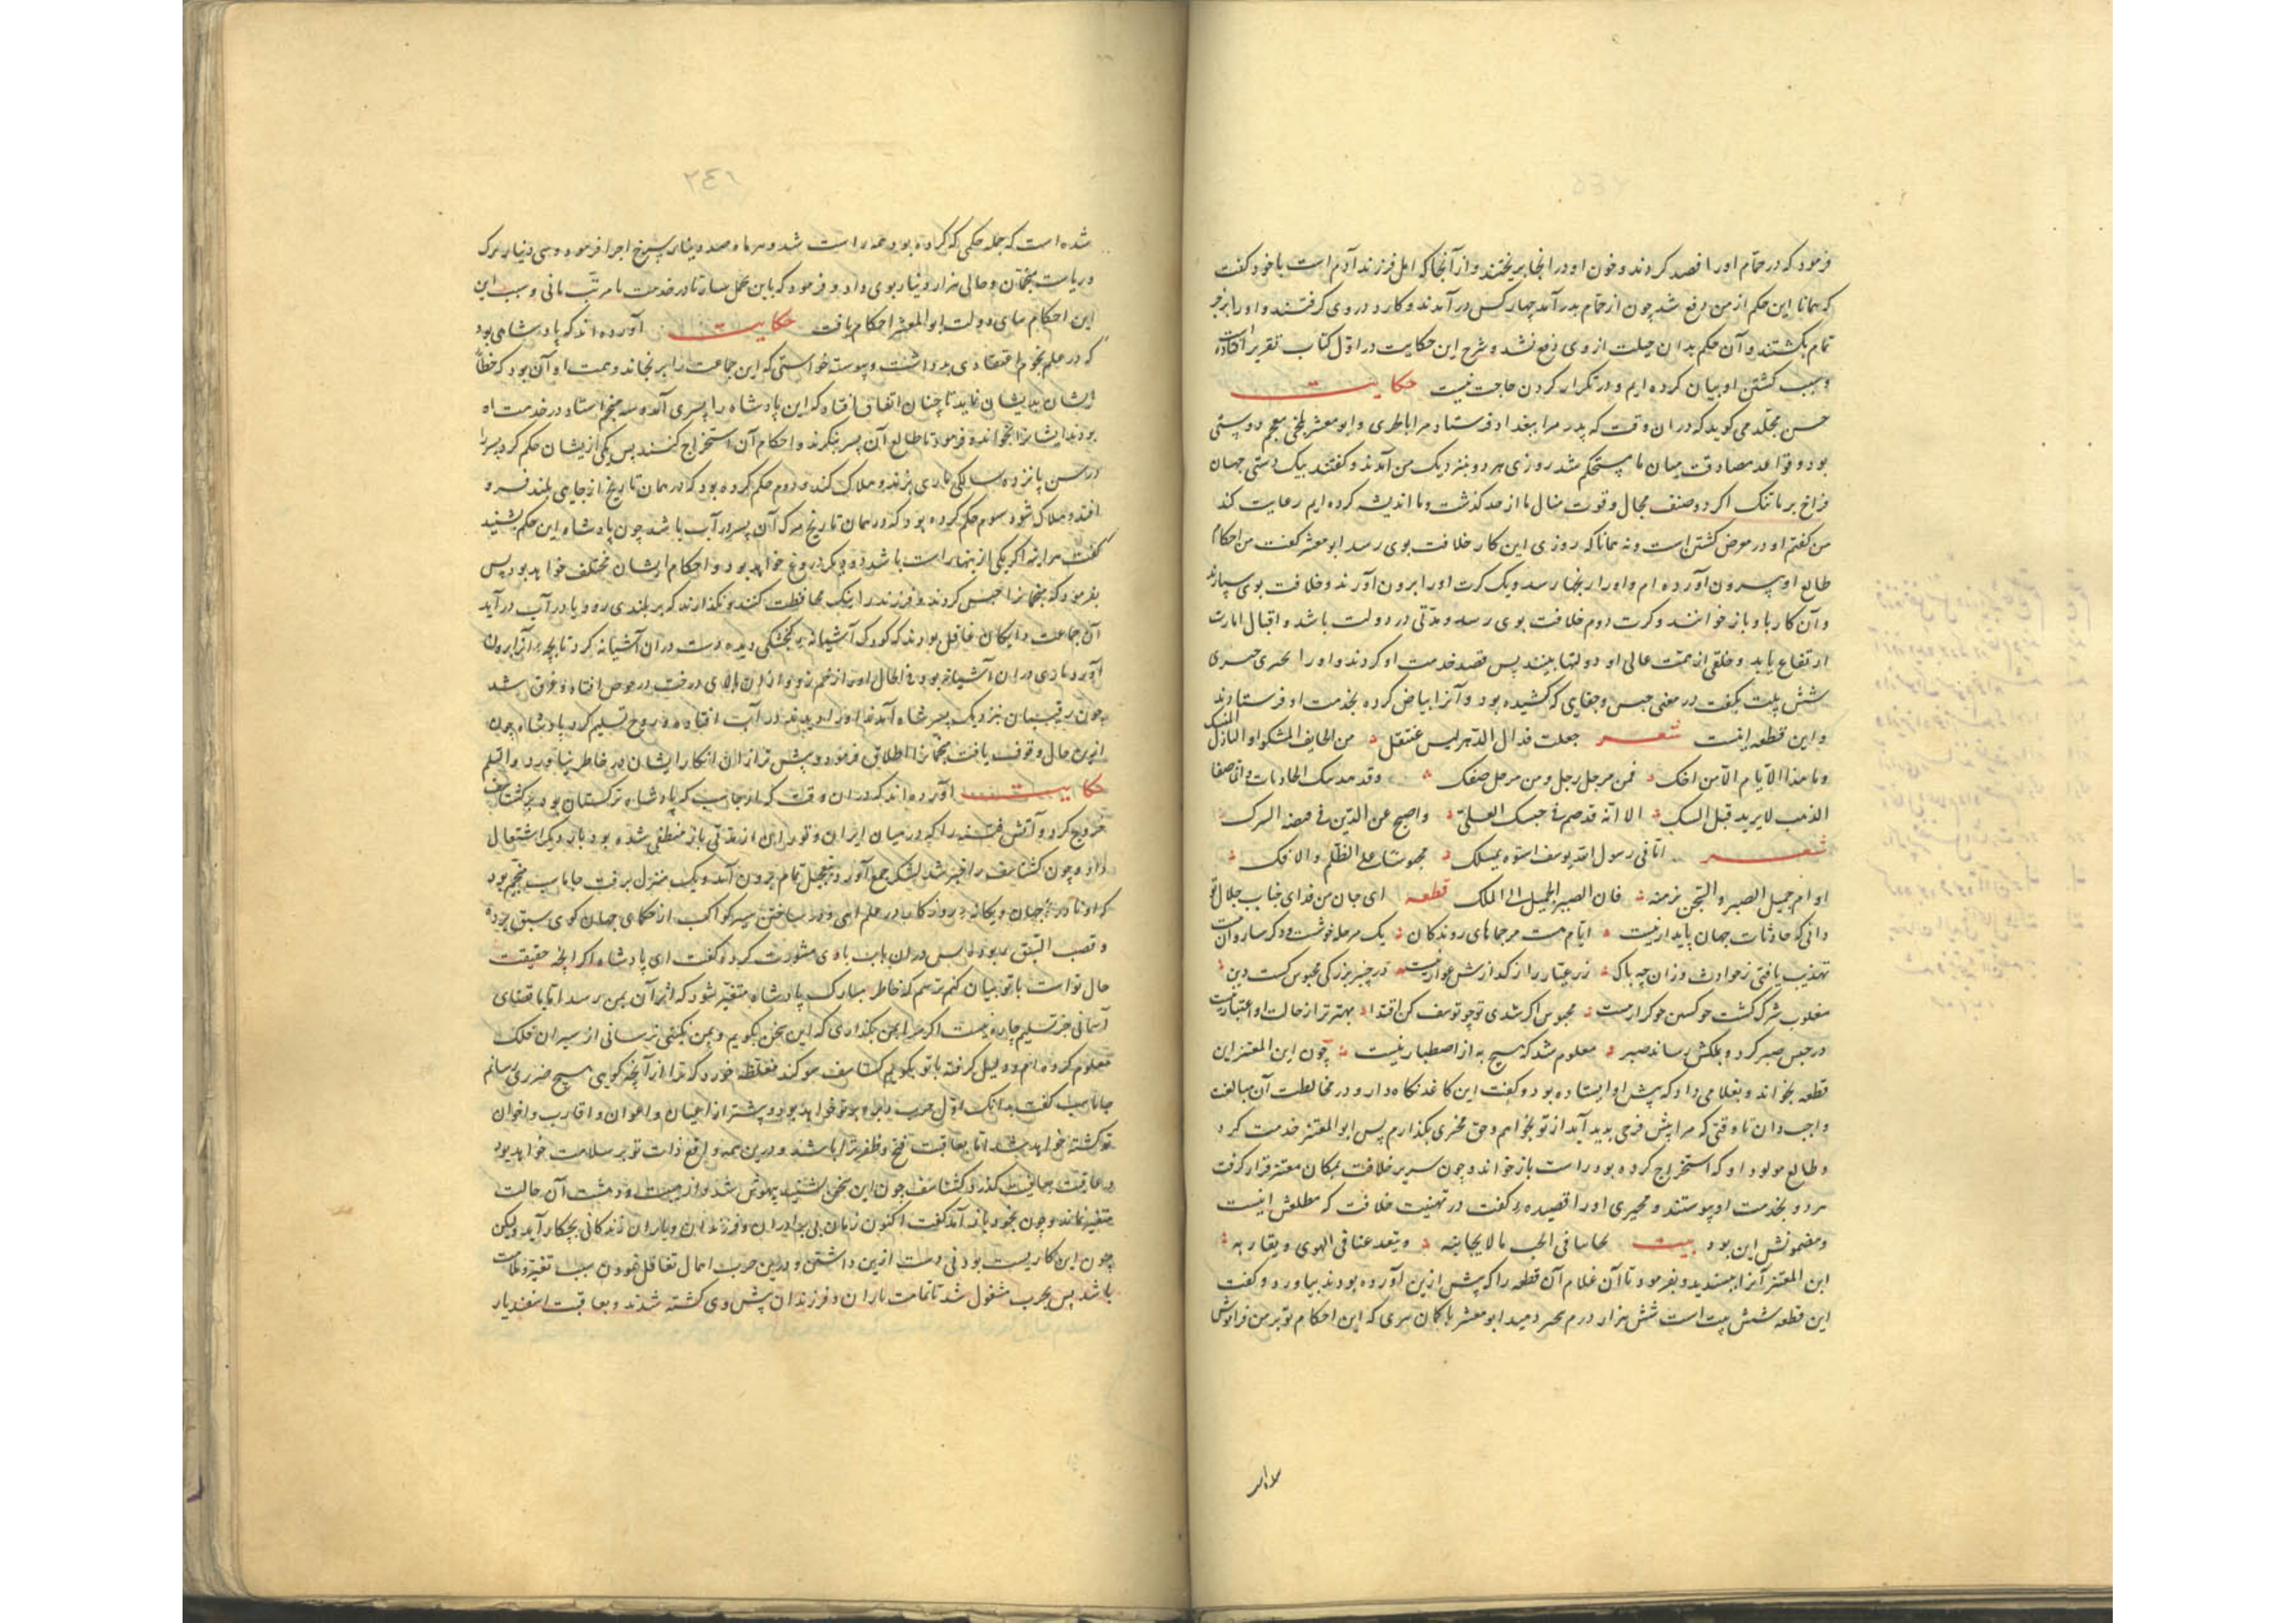 فرمود که در حمام او را فصد کردند و خون او در انجا بریختند و از آنجا که اهل فرزند آدم است با خود کفت
که همانا این حکم از من دفع شد چون از حمام بدر آمد چهار کس در آمدند و کارد در وی کرفتند و او را
تمام بکشتند و آن حکم بدان حیلت از وی دفع نشد و شرح این حکایت در اول کتاب تقریر افتاده است
و سبب کشتن او بیان کرده ایم و در تکرار کردن حاجت نیست حکایت
حسن مجلد می کوید که در ان وقت که پدر مرا ببغداد فرستاد مرا با و ابو معشر بلخی منجم دوستی
بود و قواعد مصادقت میان ما مستحکم شد روزی هر دو بنزدیک من آمدند و کفتند بیک دستی جهان
فراخ بر ما تنک اکر دو صنف مجال و قوت منال ما از حد کذشت و ما اندیشه کرده ایم رعایت کند
من کفتم او در معرض کشتن است و نه همانا که روزی این کار خلافت بوی رسد ابو معشر کفت من احکام
طالع او بیرون آورده ام و او را رسد و یک کرت او را برون آورند و خلافت بوی سپارند
و آن کار با و باز خوانند و کرت دوم خلافت بوی رسد و مدتی در دولت باشد و اقبال امارت
ارتفاع یابد و خلقی از همت عالی او دولتها بینند پس قصد خدمت او کردند و او را بحتری
شش بیت بکفت در معنی حبس و جفایی که کشیده بود و آنرا بیاض کرده بخدمت او فرستادند
و این قطعه اینست شعر جعلت فدال الدهر لیس عنتقل من الحایف المشکو او النازل المشک
و ما هذا الایام الا من احک فمن مرحل رجل و من مرحل صفک وقد الحادثات و انما صفا
الذهب لا برید قبل السبک الا انه قد صم فی حبسک العلی و اصبح عن الدین فی
شعر اتانی رسول الله یوسف اسوه لمثلک محبوسا علی الظلم و الافک
اوام جمیل الصبر و السجن برهه فان الصبر الجمیل الی الملک قطعه ای جان من فدای جناب جلال تو
دانی که حادثات جهان پایدار نیست ایام هست مرحلهای روندکان یک مرحله خوشست و دکر سازوار نیست
تهذیب یافتی ز حوادث و زان چه باک زر عیار را ز کدازش عوار نیست
مغلوب شرک کشت محبوس اکر شدی تو چو یوسف کن اقتدا بهتر تر از حالت او اعتبار نیست
در حبس صبر کرد و بملکش رساند صبر معلوم شد که هیچ به از اصطبار نیست چون ابن المعتز این
قطعه بخواند و بغلامی داد که پیش او ایستاده بود و کفت این کاغذ نکاه دار و در محافظت آن مبالغت
واجب دان تا وقتی که مرا پیش فرجی بدید آید از تو بخواهم و حق بکذارم پس ابو المعتز خدمت کرد
و طالع مولود او که استخراج کرده بود راست باز خواند و چون سریر خلافت بمکان معتز قرار کرفت
هر دو بخدمت او پیوستند و بحتری او را قصیده کفت در تهنیت خلافت که مطلعش اینست
و مضمونش این بود بیت
ابن المعتز آنرا بپسندید و بفرمود تا آن غلام آن قطعه را که پیش ازین آورده بودند بیاورد و کفت
این قطعه شش بیت است شش هزار درم دهید ابو معشر با کمان بری که این احکام تو بر من فراموش
٢٤١
شده است که جمله حکمی که کرده بود همه راست شد و هر ماه صد دینار سرخ اجرا فرمود و سی دینار برک
و ریاست منجمان و حالی هزار دینار بوی داد و فرمود که با این بساز تا در خدمت ما مرتب مانی و سبب این
این احکام در دولت ابو المعتز احکام یافت حکایت آورده اند که پادشاهی بود
که در علم نجوم اعتقادی نداشت و پیوسته خواستی که این جماعت را برنجاند و همت او آن بود که خطای
ایشان بدیشان نماید تا چنان اتفاق افتاد که این پادشاه را پسری آمد و سه منجم استاد در خدمت او
بودند ایشانرا بخواند و فرمود تا طالع آن پسر بنکرند و احکام آن استخراج کنند پس یکی از ایشان حکم کرد پسر را
در سن پانزده سالکی ماری بزند و هلاک کند و دوم حکم کرده بود که در همان تاریخ از جایی بلند فرو
افتد و هلاک شود سوم حکم کرده بود که در همان تاریخ مرک آن پسر در آب باشد چون پادشاه این حکم بشنید
کفت هر اینه اکر یکی از اینها راست باشد دو دیکر دروغ خواهد بود و احکام ایشان مختلف خواهد بود پس
بفرمود که منجمانرا حبس کردند و فرزند را نیک محافظت کنند و نکذارند که بر بلندی رود یا در آب در آید
آن جماعت غافل بودند که کودک آشیانه کنجشکی دید دست در ان آشیانه کرد تا بچه آنرا برون
آورد ماری در ان آشیانه بود فی الحال او را زخم زد و از ان بالای درخت در حوض افتاد و غرق شد
چون رقیبان بنزدیک پسر شاه آمدند او را دیدند در آب افتاده و روح تسلیم کرد پادشاه چون
ازین حال وقوف یافت منجمانرا اطلاق فرمود و پیش تر از ان انکار ایشان در خاطر نیاورد والسلم
حکایت آورده اند که در ان وقت که ارجاسب که پادشاه ترکستان بود بر کشتاسف
خروج کرد و آتش فتنه را که در میان ایران و توران از مدتی باز منطفی شده بود بار دیکر اشتعال
داد و چون کشتاسف را خبر شد لشکر جمع آورد و بتعجیل تمام برون آمد و یک منزل برفت جاماسب منجم بود
که او نادره جهان و یکانه روزکار بود در علم الهی و در شناختن سیر کواکب از حکمای جهان کوی سبق برده
و قصب السبق ربوده پس در ان باب با وی مشورت کرد و کفت ای پادشاه اکر انچه حقیقت
حال تو است با تو بیان کنم ترسم که خاطر مبارک پادشاه متغیر شود که اثر آن بمن رسد اما با قضای
آسمانی جز تسلیم چاره نیست اکر مرا بمن بکذاری که این سخن نکویم و بمن نکبتی نرسانی از سیران فلک
معلوم کرده ام و دلیل کرفته با تو بکویم کشتاسف سوکند مغلظه خورد که ترا از آنچه کویی هیچ ضرری نرسانم
جاماسب کفت بدانک اول حرب خواهد بود و بیشتر از اعیان و اعوان و اقارب و اخوان
تو کشته خواهد شد اما بعاقبت فتح و ظفر ترا باشد و درین همه وقایع ذات تو بر سلامت خواهد بود
و عاقبت بعافیت کذرد کشتاسف چون این سخن بشنید بیهوش شد و از هیبت و دهشت آن حالت
متغیر بماند و چون بخود باز آمد کفت اکنون زمان بی برادران و فرزندان و یاران زندکانی بچکار آید و لیکن
چون این کاریست بودنی دست ازین داشتن و درین حرب اهمال تغافل نمودن سبب تغیر و ملامت
باشد پس بحرب مشغول شد تا تمامت یاران و فرزندان پیش وی کشته شدند و بعاقبت اسفندیار